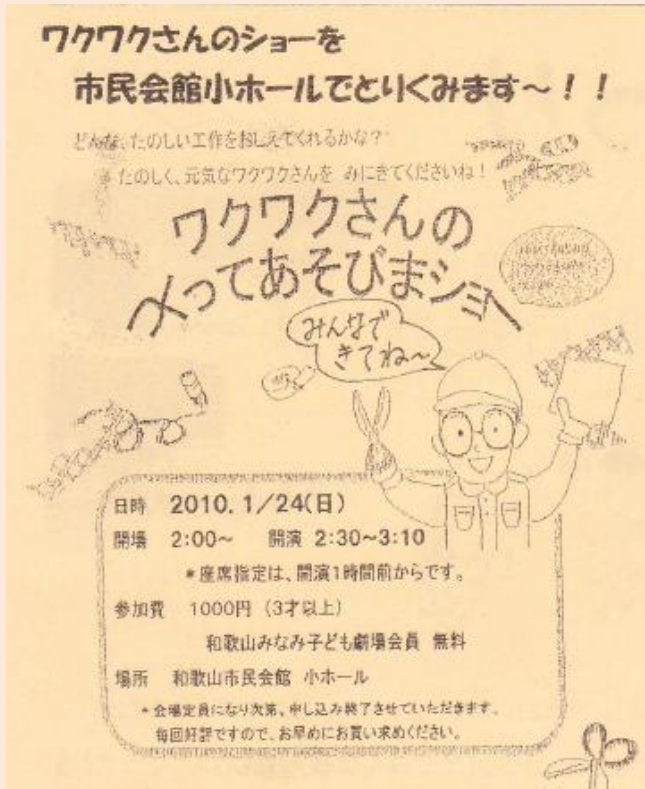 ワクワクさんのショーを
市民会館小ホールでとりくみます～！！
どんな、たのしい工作をおしえてくれるかな？
たのしく、元気なワクワクさんを みにきてくださいね！
ワクワクさんの
つくってあそびまショー
みんなで
きてね～
日時 2010.1/24(日)
開場 2:00～ 開演 2:30～3:10
＊座席指定は、開演1時間前からです。
参加費 1000円（3才以上）
和歌山みなみ子ども劇場会員 無料
場所 和歌山市民会館 小ホール
＊会場定員になり次第、申し込み終了させていただきます。
毎回好評ですので、お早めにお買い求めください。